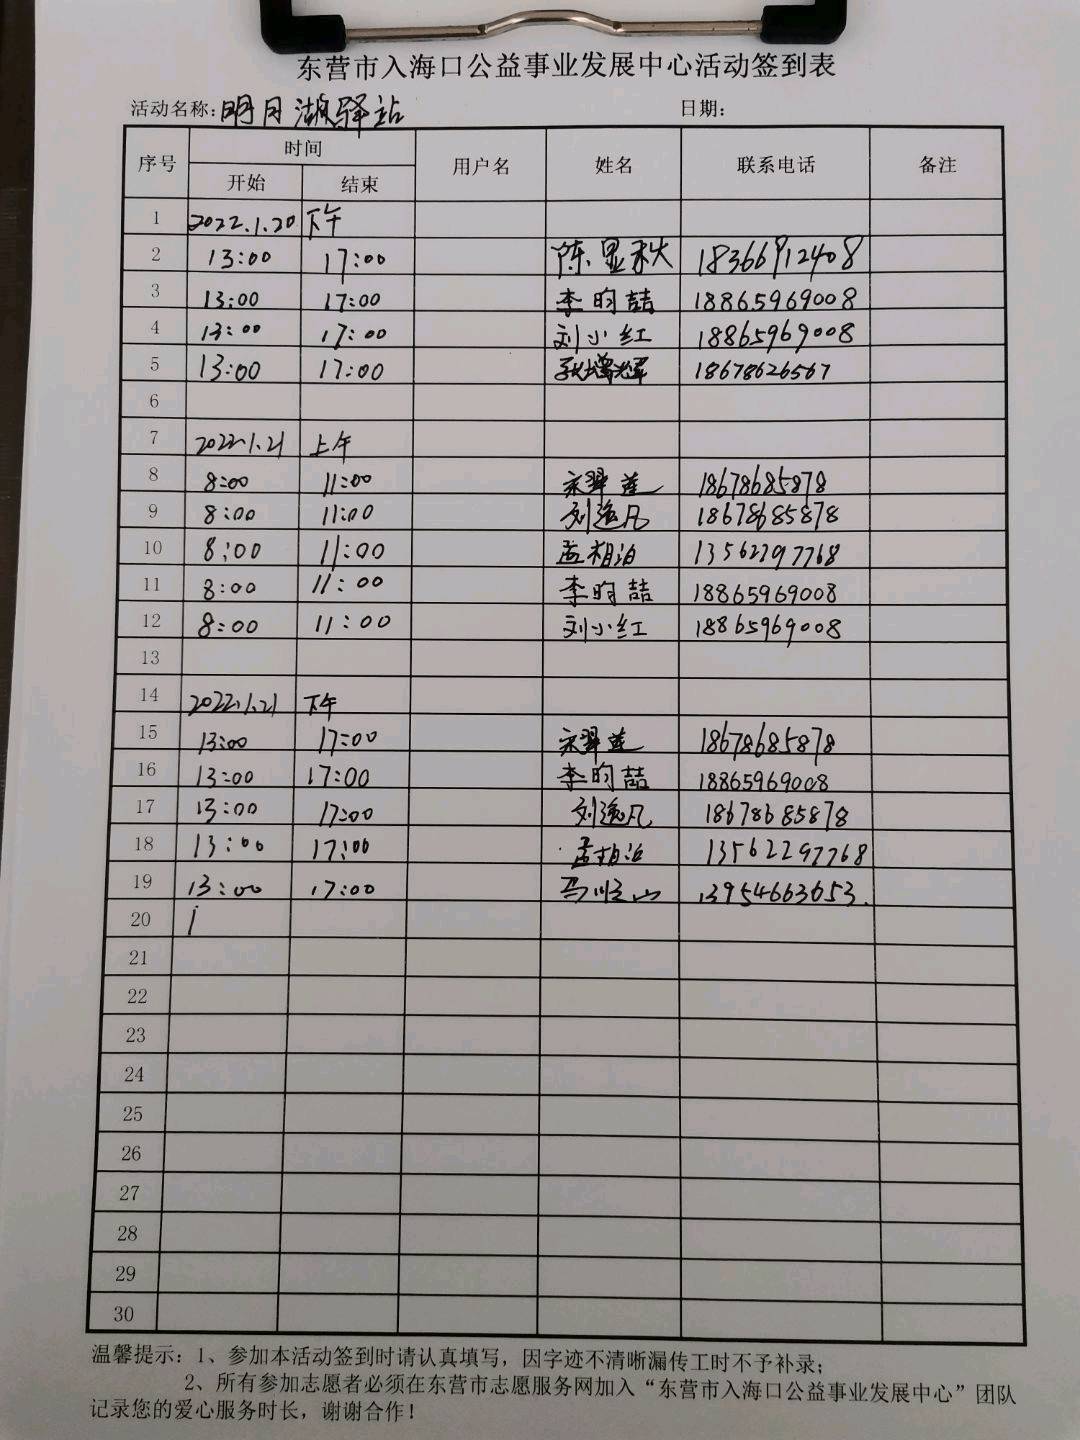 东营市入海口公益事业发展中心活动签到表
活动名称: 明月湖驿站 日期:
序号 时间 用户名 姓名 联系电话 备注
开始 结束
1 2022.1.20 下午
2 13:00 17:00 陈显秋 18366912408
3 13:00 17:00 李昀喆 18865969008
4 13:00 17:00 刘小红 18865969008
5 13:00 17:00 张增辉 18678626567
6
7 2022.1.21 上午
8 8:00 11:00 宋翠莲 18678685878
9 8:00 11:00 刘逸凡 18678685878
10 8:00 11:00 孟相泊 13562297768
11 8:00 11:00 李昀喆 18865969008
12 8:00 11:00 刘小红 18865969008
13
14 2022.1.21 下午
15 13:00 17:00 宋翠莲 18678685878
16 13:00 17:00 李昀喆 18865969008
17 13:00 17:00 刘逸凡 18678685878
18 13:00 17:00 孟相泊 13562297768
19 13:00 17:00 马顺山 13954663653.
20
21
22
23
24
25
26
27
28
29
30
温馨提示: 1、参加本活动签到时请认真填写，因字迹不清晰漏传工时不予补录;
2、所有参加志愿者必须在东营市志愿服务网加入“东营市入海口公益事业发展中心”团队
记录您的爱心服务时长，谢谢合作!